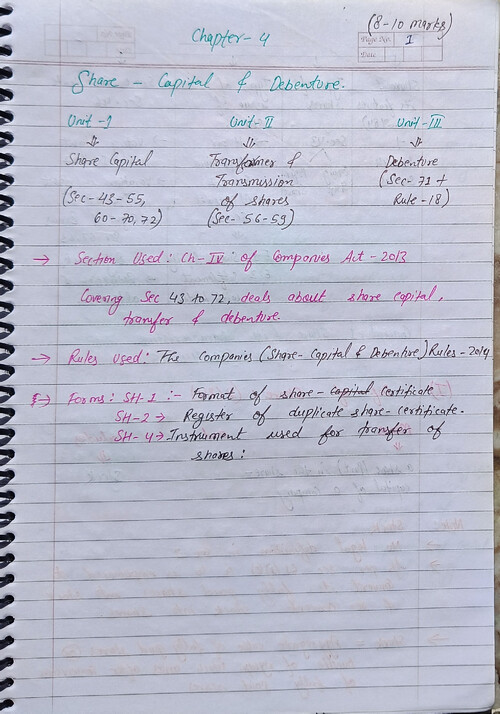 (8-10 marks)
Chapter-4
Page No. 1
Date
Share - Capital & Debenture.
Unit-I Unit-II Unit-III
Share Capital Transformer & Debenture
(Sec-43-55, Transmission (Sec-71 +
60-70,72) of shares Rule-18)
(Sec- 56-59)
→ Section Used: Ch-IV of Companies Act-2013
Covering Sec 43 to 72, deals about share capital,
transfer & debenture.
→ Rules Used: The Companies (Share-Capital & Debentire) Rules-2014
→ Forms: SH-1 :- Format of share-capital certificate
SH-2 → Register of duplicate share-certificate.
SH-4 → Instrument used for transfer of
shares: